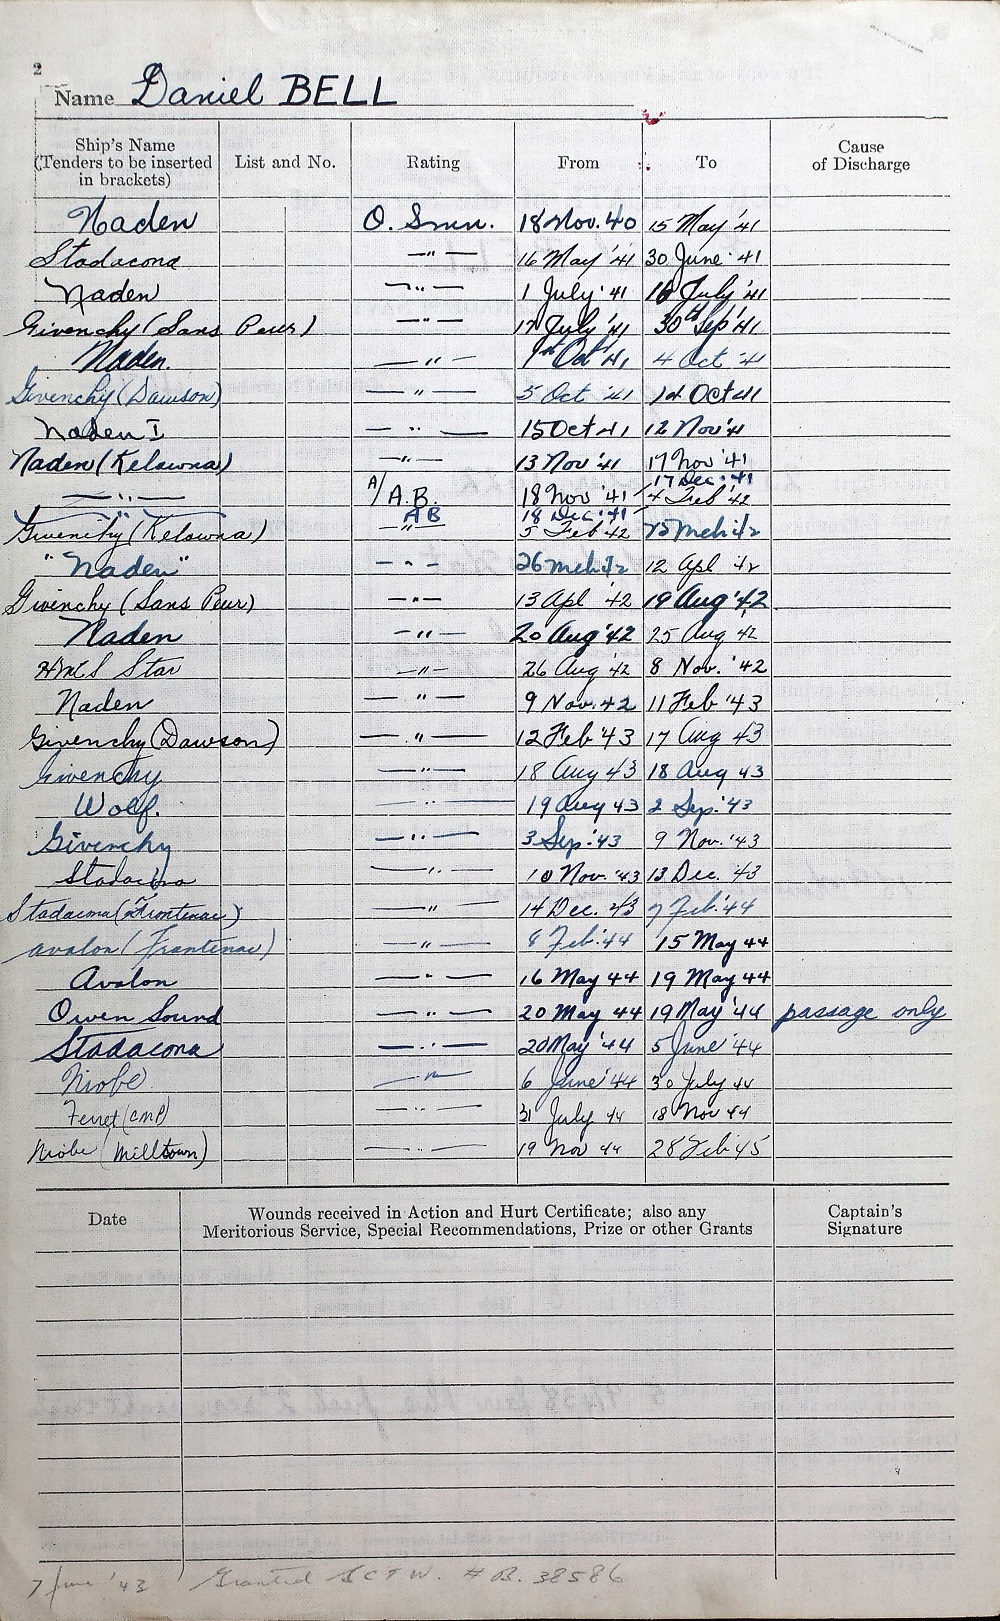 2
Name Daniel BELL
Ship's Name (Tenders to be inserted in brackets) List and No. Rating From To Cause of Discharge
Naden O. Smn. 18 Nov. 40 15 May '41
Stadacona —"— 16 May '41 30 June '41
Naden —"— 1 July '41 16 July '41
Givenchy (Sans Peur) —"— 17 July '41 30th Sep '41
Naden. —"— 1st Oct '41 4 Oct '41
Givenchy (Dawson) —"— 5 Oct '41 14 Oct 41
Naden I —"— 15 Oct 41 12 Nov '41
Naden (Kelowna) —"— 13 Nov '41 17 Nov '41
—"— A/A.B. 18 Nov '41 17 Dec. '41
—"— AB 18 Dec. '41 4 Feb '42
Givenchy (Kelowna) —"— 5 Feb '42 25 Mch 42
"Naden" —"— 26 Mch 42 12 Apl '42
Givenchy (Sans Peur) —"— 13 Apl '42 19 Aug '42
Naden —"— 20 Aug '42 25 Aug '42
HMS Star —"— 26 Aug '42 8 Nov. '42
Naden —"— 9 Nov. 42 11 Feb '43
Givenchy (Dawson) —"— 12 Feb '43 17 Aug 43
Givenchy —"— 18 Aug 43 18 Aug 43
Wolf. —"— 19 Aug 43 2 Sep. '43
Givenchy —"— 3 Sep. '43 9 Nov. '43
Stadacona —"— 10 Nov. '43 13 Dec. '43
Stadacona (Frontenac) —"— 14 Dec. 43 7 Feb. '44
Avalon (Frontenac) —"— 8 Feb. '44 15 May 44
Avalon —"— 16 May 44 19 May 44
Owen Sound —"— 20 May 44 19 May '44 passage only
Stadacona —"— 20 May '44 5 June '44
Niobe —"— 6 June '44 30 July 44
Ferret (CMP) —"— 31 July 44 18 Nov 44
Niobe (Milltown) —"— 19 Nov 44 28 Feb '45
Date Wounds received in Action and Hurt Certificate; also any Meritorious Service, Special Recommendations, Prize or other Grants Captain's Signature
7 June '43 Granted S C T W. # B. 38586